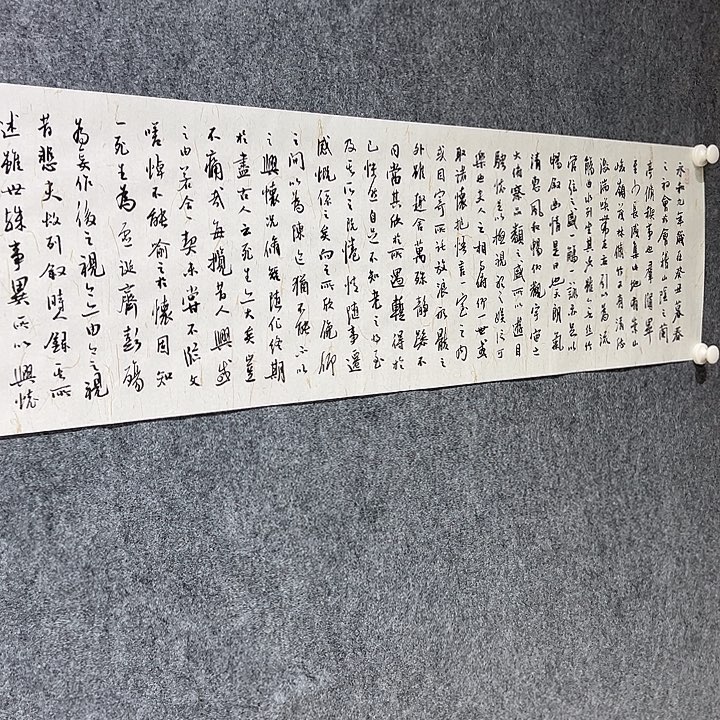 永和九年歲在癸丑暮春
之初會於會稽山陰之蘭
亭脩稧事也羣賢畢
至少長咸集此地有崇山
峻嶺茂林脩竹又有清流
激湍映帶左右引以為流
觴曲水列坐其次雖無絲竹
管弦之盛一觴一詠亦足以
暢叙幽情是日也天朗氣
清惠風和暢仰觀宇宙之
大俯察品類之盛所以遊目
騁懷足以極視聽之娛信可
樂也夫人之相與俯仰一世或
取諸懷抱悟言一室之內
或因寄所託放浪形骸之
外雖趣舍萬殊靜躁不
同當其欣於所遇輒得於
己怏然自足不知老之將至
及其所之既惓情隨事遷
感慨係之矣向之所欣俛仰
之間以為陳迹猶不能不以
之興懷況脩短隨化終期
於盡古人云死生亦大矣豈
不痛哉每攬昔人興感
之由若合一契未嘗不臨文
嗟悼不能喻之於懷固知
一死生為虛誕齊彭殤
為妄作後之視今亦由今之視
昔悲夫故列叙時人錄其所
述雖世殊事異所以興懷